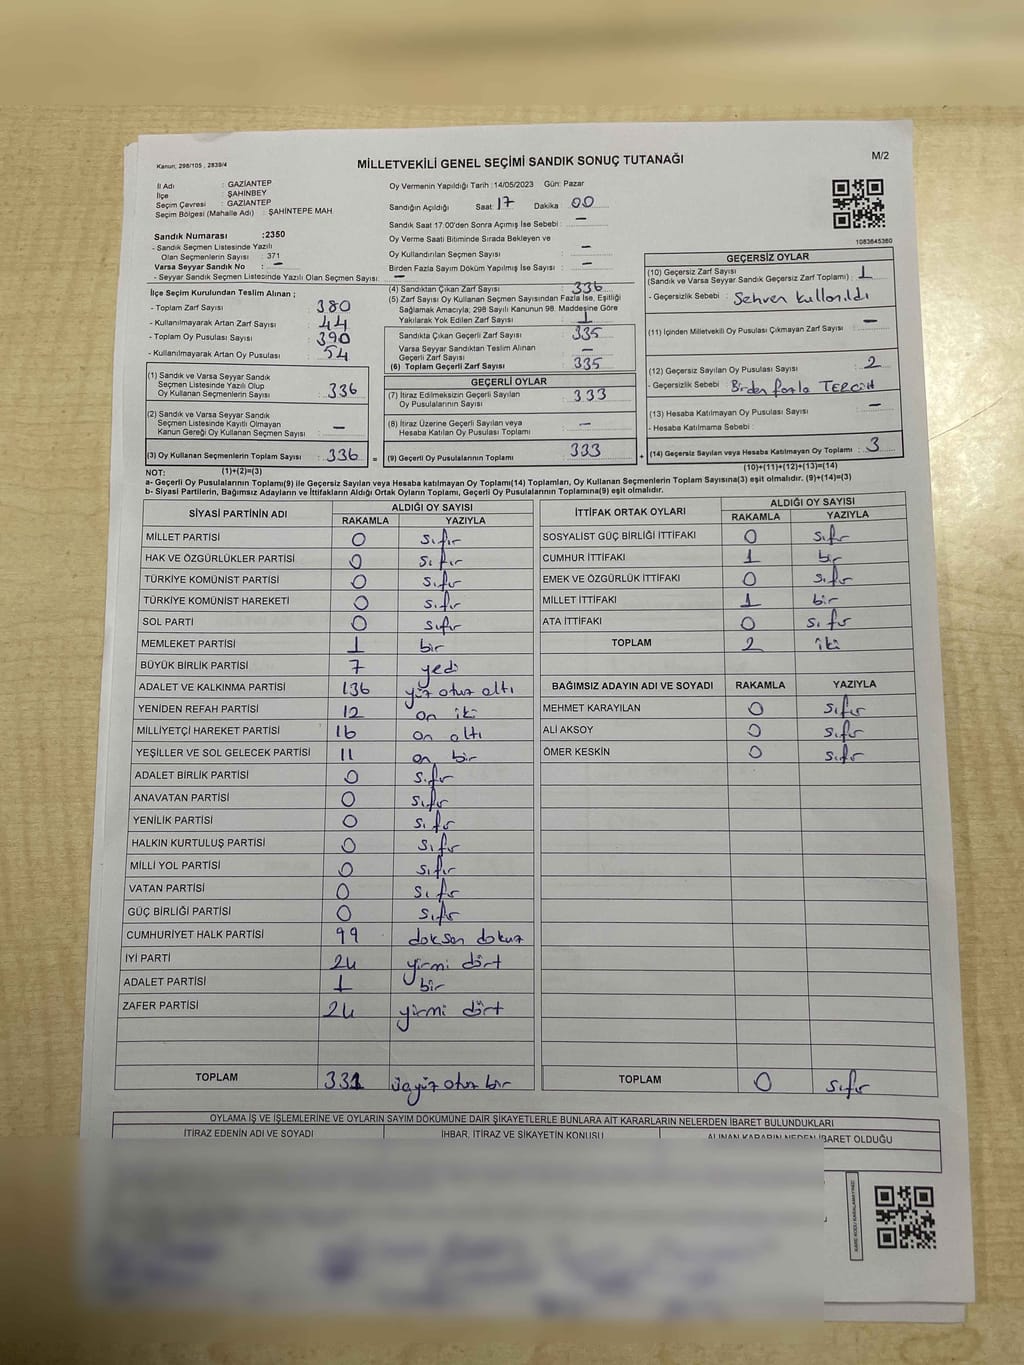 Kanun; 298/105 , 2839/4
MİLLETVEKİLİ GENEL SEÇİMİ SANDIK SONUÇ TUTANAĞI
M/2
İl Adı : GAZİANTEP
İlçe : ŞAHİNBEY
Seçim Çevresi : GAZİANTEP
Seçim Bölgesi (Mahalle Adı) : ŞAHİNTEPE MAH.
Sandık Numarası :2350
- Sandık Seçmen Listesinde Yazılı
Olan Seçmenlerin Sayısı : 371
Varsa Seyyar Sandık No : –
- Seyyar Sandık Seçmen Listesinde Yazılı Olan Seçmen Sayısı: –
Oy Vermenin Yapıldığı Tarih :14/05/2023 Gün: Pazar
Sandığın Açıldığı Saat: 17 Dakika 00
Sandık Saat 17:00'den Sonra Açımış İse Sebebi : –
Oy Verme Saati Bitiminde Sırada Bekleyen ve
Oy Kullandırılan Seçmen Sayısı : –
Birden Fazla Sayım Döküm Yapılmış İse Sayısı : –
1083645360
İlçe Seçim Kurulundan Teslim Alınan ;
- Toplam Zarf Sayısı : 380
- Kullanılmayarak Artan Zarf Sayısı : 44
- Toplam Oy Pusulası Sayısı : 390
- Kullanılmayarak Artan Oy Pusulası : 54
(1) Sandık ve Varsa Seyyar Sandık
Seçmen Listesinde Yazılı Olup
Oy Kullanan Seçmenlerin Sayısı : 336
(2) Sandık ve Varsa Seyyar Sandık
Seçmen Listesinde Kayıtlı Olmayan
Kanun Gereği Oy Kullanan Seçmen Sayısı : –
(3) Oy Kullanan Seçmenlerin Toplam Sayısı : 336 =
(4) Sandıktan Çıkan Zarf Sayısı : 336
(5) Zarf Sayısı Oy Kullanan Seçmen Sayısından Fazla İse, Eşitliği
Sağlamak Amacıyla; 298 Sayılı Kanunun 98. Maddesine Göre
Yakılarak Yok Edilen Zarf Sayısı : 1
Sandıkta Çıkan Geçerli Zarf Sayısı : 335
Varsa Seyyar Sandıktan Teslim Alınan
Geçerli Zarf Sayısı : –
(6) Toplam Geçerli Zarf Sayısı : 335
GEÇERLİ OYLAR
(7) İtiraz Edilmeksizin Geçerli Sayılan
Oy Pusulalarının Sayısı : 333
(8) İtiraz Üzerine Geçerli Sayılan veya
Hesaba Katılan Oy Pusulası Toplamı : –
(9) Geçerli Oy Pusulalarının Toplamı : 333 +
GEÇERSİZ OYLAR
(10) Geçersiz Zarf Sayısı
(Sandık ve Varsa Seyyar Sandık Geçersiz Zarf Toplamı) : 1
- Geçersizlik Sebebi : Sehven kullanıldı
(11) İçinden Milletvekili Oy Pusulası Çıkmayan Zarf Sayısı : –
(12) Geçersiz Sayılan Oy Pusulası Sayısı : 2
- Geçersizlik Sebebi : Birden fazla TERCİH
(13) Hesaba Katılmayan Oy Pusulası Sayısı : –
- Hesaba Katılmama Sebebi :
(14) Geçersiz Sayılan veya Hesaba Katılmayan Oy Toplamı : 3
NOT: (1)+(2)=(3) (10)+(11)+(12)+(13)=(14)
a- Geçerli Oy Pusulalarının Toplamı(9) ile Geçersiz Sayılan veya Hesaba katılmayan Oy Toplamı(14) Toplamları, Oy Kullanan Seçmenlerin Toplam Sayısına(3) eşit olmalıdır. (9)+(14)=(3)
b- Siyasi Partilerin, Bağımsız Adayların ve İttifakların Aldığı Ortak Oyların Toplamı, Geçerli Oy Pusulalarının Toplamına(9) eşit olmalıdır.
SİYASİ PARTİNİN ADI ALDIĞI OY SAYISI
RAKAMLA YAZIYLA
MİLLET PARTİSİ 0 sıfır
HAK VE ÖZGÜRLÜKLER PARTİSİ 0 sıfır
TÜRKİYE KOMÜNİST PARTİSİ 0 sıfır
TÜRKİYE KOMÜNİST HAREKETİ 0 sıfır
SOL PARTİ 0 sıfır
MEMLEKET PARTİSİ 1 bir
BÜYÜK BİRLİK PARTİSİ 7 yedi
ADALET VE KALKINMA PARTİSİ 136 yüz otuz altı
YENİDEN REFAH PARTİSİ 12 on iki
MİLLİYETÇİ HAREKET PARTİSİ 16 on altı
YEŞİLLER VE SOL GELECEK PARTİSİ 11 on bir
ADALET BİRLİK PARTİSİ 0 sıfır
ANAVATAN PARTİSİ 0 sıfır
YENİLİK PARTİSİ 0 sıfır
HALKIN KURTULUŞ PARTİSİ 0 sıfır
MİLLİ YOL PARTİSİ 0 sıfır
VATAN PARTİSİ 0 sıfır
GÜÇ BİRLİĞİ PARTİSİ 0 sıfır
CUMHURİYET HALK PARTİSİ 99 doksan dokuz
İYİ PARTİ 24 yirmi dört
ADALET PARTİSİ 1 bir
ZAFER PARTİSİ 24 yirmi dört
TOPLAM 331 üçyüz otuz bir
İTTİFAK ORTAK OYLARI ALDIĞI OY SAYISI
RAKAMLA YAZIYLA
SOSYALİST GÜÇ BİRLİĞİ İTTİFAKI 0 sıfır
CUMHUR İTTİFAKI 1 bir
EMEK VE ÖZGÜRLÜK İTTİFAKI 0 sıfır
MİLLET İTTİFAKI 1 bir
ATA İTTİFAKI 0 sıfır
TOPLAM 2 iki
BAĞIMSIZ ADAYIN ADI VE SOYADI RAKAMLA YAZIYLA
MEHMET KARAYILAN 0 sıfır
ALİ AKSOY 0 sıfır
ÖMER KESKİN 0 sıfır
TOPLAM 0 sıfır
OYLAMA İŞ VE İŞLEMLERİNE VE OYLARIN SAYIM DÖKÜMÜNE DAİR ŞİKAYETLERLE BUNLARA AİT KARARLARIN NELERDEN İBARET BULUNDUKLARI
İTİRAZ EDENİN ADI VE SOYADI İHBAR, İTİRAZ VE ŞİKAYETİN KONUSU ALINAN KARARIN NEDEN İBARET OLDUĞU
KARE KODU KARALAMAYINIZ!